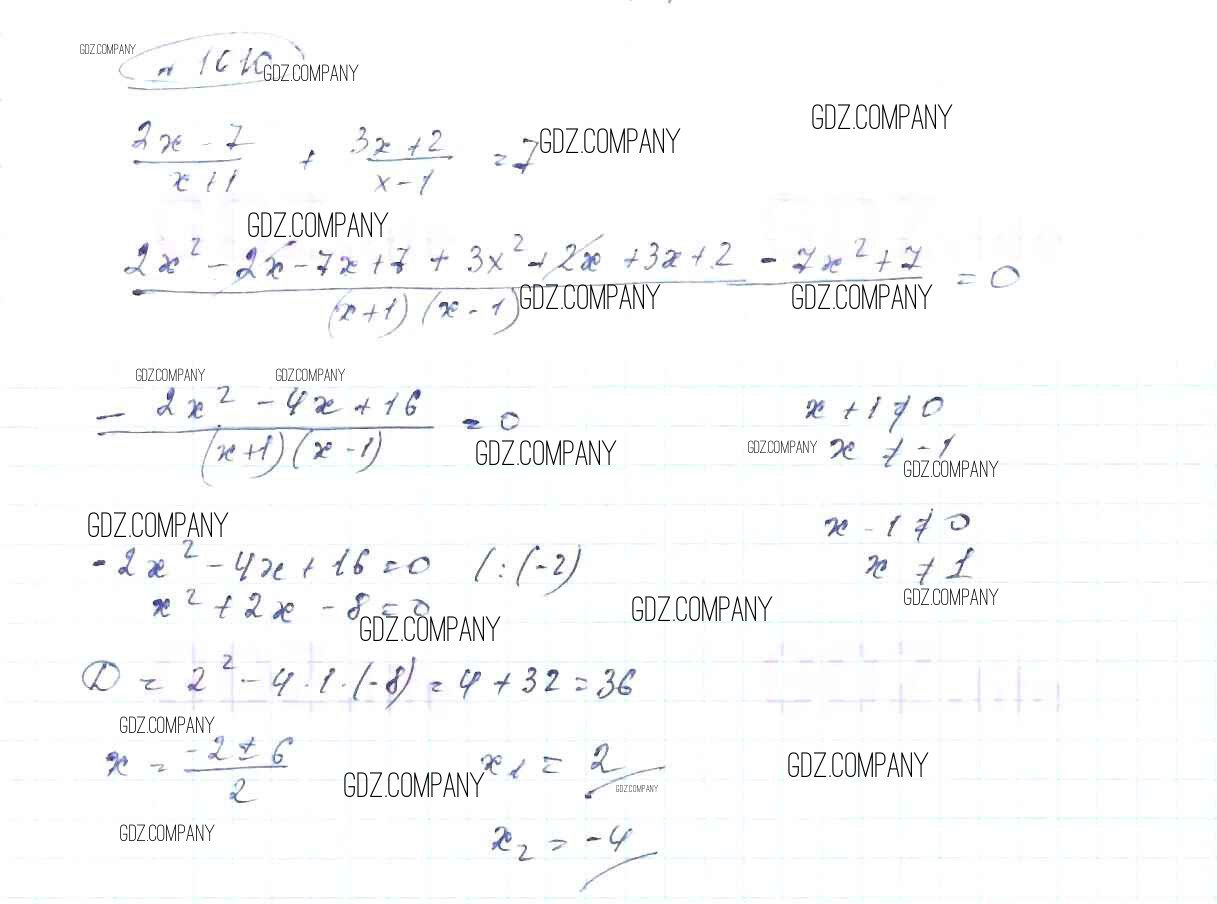 GDZ.COMPANY
GDZ.COMPANY
GDZ.COMPANY
(2x - 7)/(x + 1) + (3x + 2)/(x - 1) = 7 GDZ.COMPANY
GDZ.COMPANY
(2x² - 2x - 7x + 7 + 3x² + 2x + 3x + 2 - 7x² + 7)/((x + 1)(x - 1)) = 0
GDZ.COMPANY GDZ.COMPANY
GDZ.COMPANY GDZ.COMPANY
(-2x² - 4x + 16)/((x + 1)(x - 1)) = 0
GDZ.COMPANY
x + 1 ≠ 0
GDZ.COMPANY x ≠ -1
GDZ.COMPANY
GDZ.COMPANY
x - 1 ≠ 0
x ≠ 1
GDZ.COMPANY
-2x² - 4x + 16 = 0 | : (-2)
x² + 2x - 8 = 0
GDZ.COMPANY GDZ.COMPANY
D = 2² - 4 · 1 · (-8) = 4 + 32 = 36
GDZ.COMPANY
x = (-2 ± 6)/2 GDZ.COMPANY x₁ = 2 GDZ.COMPANY
GDZ.COMPANY
GDZ.COMPANY
x₂ = -4